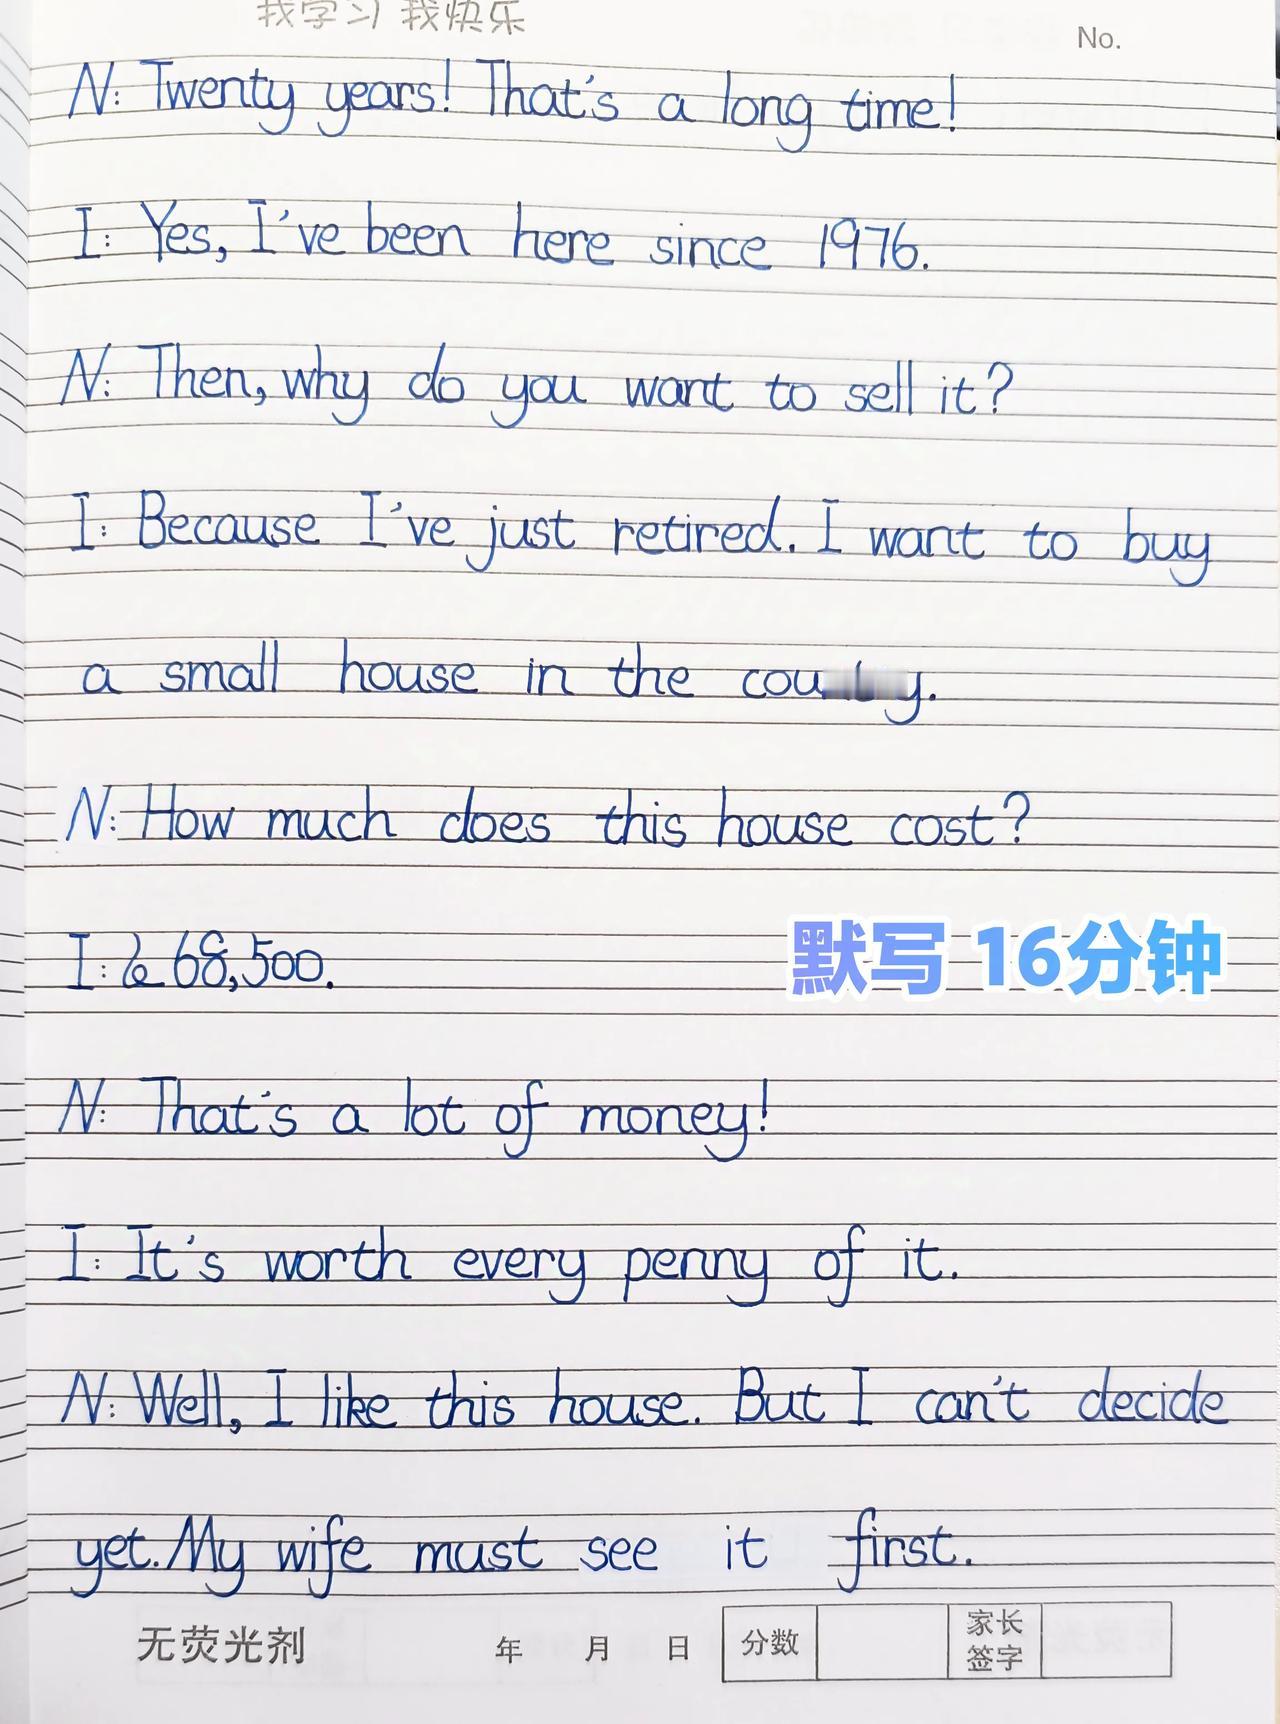 我学习 我快乐
No.
N: Twenty years! That's a long time!
I: Yes, I've been here since 1976.
N: Then, why do you want to sell it?
I: Because I've just retired. I want to buy
a small house in the
N: How much does this house cost?
I: £68,500.
默写 16分钟
N: That's a lot of money!
I: It's worth every penny of it.
N: Well, I like this house. But I can't decide
yet. My wife must see it first.
无荧光剂 年 月 日 分数 家长签字